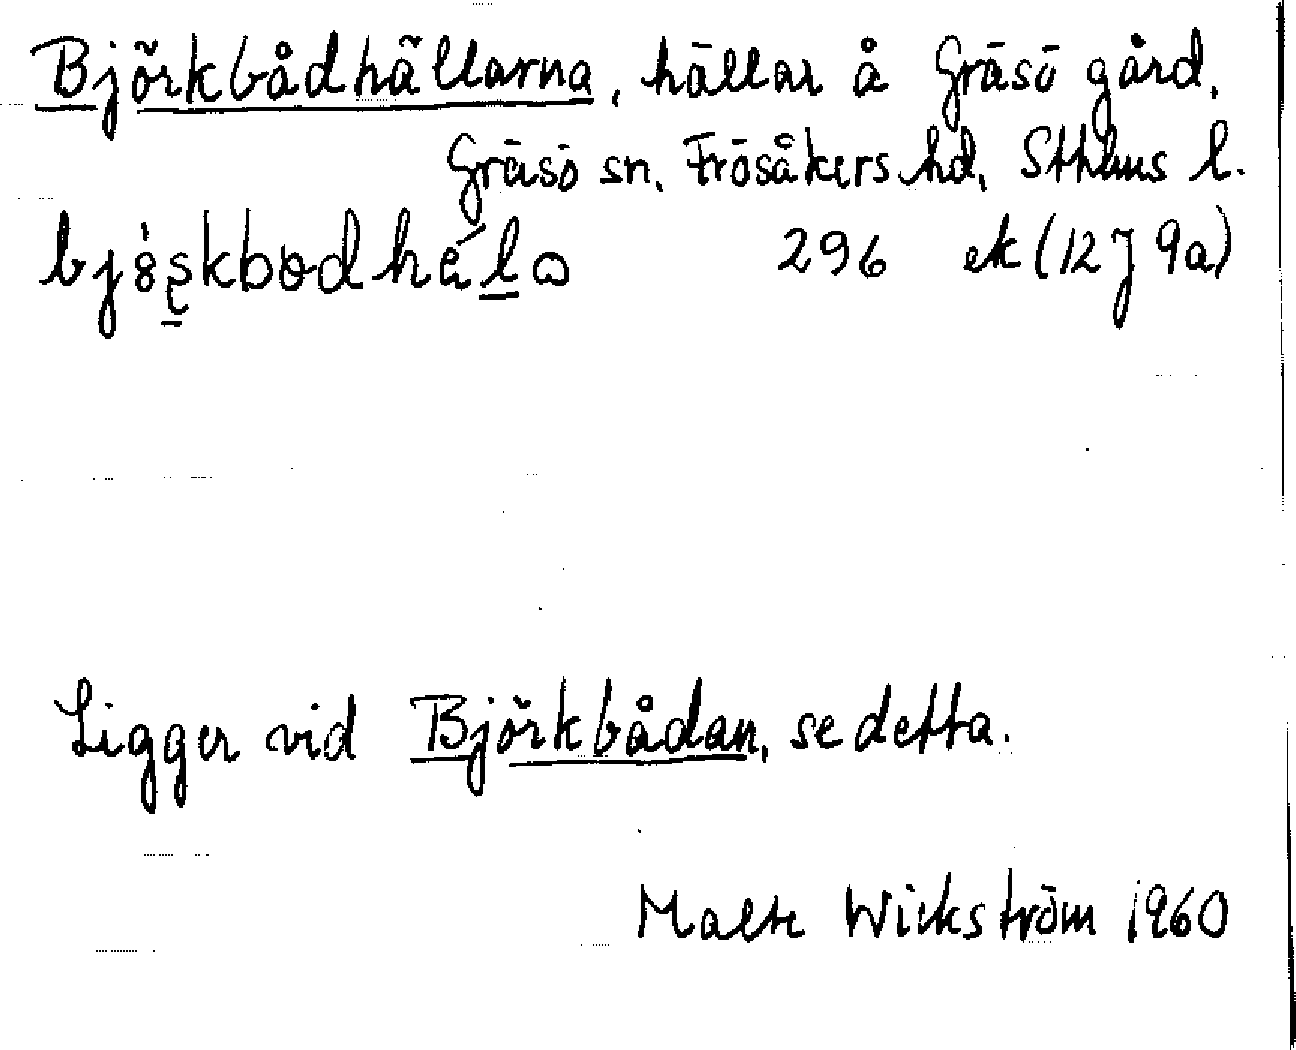 Björkbådhällarna, hällar å Gräsö gård,
Gräsö sn, Frösåkers hd, Sthlms l.
296 ek (12J 9a)
Ligger vid Björkbådan, se detta.
Malte Wickström 1960